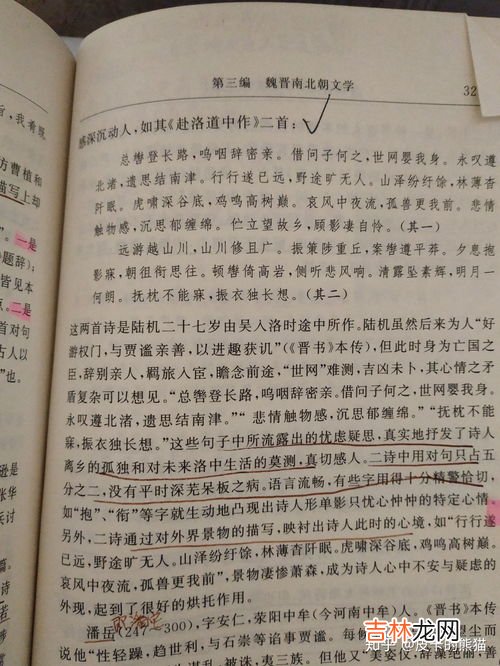 第三编　魏晋南北朝文学
32
感深沉动人，如其《赴洛道中作》二首：
总辔登长路，呜咽辞密亲。借问子何之，世网婴我身。永叹遵
北渚，遗思结南津。行行遂已远，野途旷无人。山泽纷纡馀，林薄杳
阡眠。虎啸深谷底，鸡鸣高树巅。哀风中夜流，孤兽更我前。悲情
触物感，沉思郁缠绵。伫立望故乡，顾影凄自怜。（其一）
远游越山川，山川修且广。振策陟重丘，案辔遵平莽。夕息抱
影寐，朝徂衔思往。顿辔倚高岩，侧听悲风响。清露坠素辉，明月一
何朗。抚枕不能寐，振衣独长想。（其二）
这两首诗是陆机二十七岁由吴入洛时途中所作。陆机虽然后来为人“好
游权门，与贾谧亲善，以进趣获讥”（《晋书》本传），但此时身为亡国之
臣，辞别亲人，羁旅入宦，瞻念前途，“世网”难测，吉凶未卜，其心情之矛
盾复杂可以想见。“总辔登长路，呜咽辞密亲。借问子何之，世网婴我身。
永叹遵北渚，遗思结南津。”“悲情触物感，沉思郁缠绵。”“抚枕不能
寐，振衣独长想。”这些句子中所流露出的忧虑疑思，真实地抒发了诗人
离乡的孤独和对未来洛中生活的莫测，真切感人。二诗中用对句只占五
分之二，没有平时深芜呆板之病。语言流畅，有些字用得十分精警恰切，
如“抱”、“衔”等字就生动地凸现出诗人形单影只忧心忡忡的特定心情。
另外，二诗通过对外界景物的描写，映衬出诗人此时的心境，如“行行遂
已远，野途旷无人。山泽纷纡馀，林薄杳阡眠。虎啸深谷底，鸡鸣高树巅。
哀风中夜流，孤兽更我前”，景物凄惨萧森，成为诗人心中不安与疑虑的
外现，起到了很好的烘托作用。
潘岳（247—300），字安仁，荥阳中牟（今河南中牟）人。《晋书》本传
说他“性轻躁，趋世利，与石崇等谄事贾谧。每候
谋乱，被诛，夷三族。但他又“美姿仪，辞藻绝丽，
旨，我肴既
方曹植和
描写上却
”。一是
题辞）；
皆见本
点。二是
首对句
古人以
”也。
逊是
张华
兵讨
篇。
知乎 @皮卡的熊猫
吉林龙网